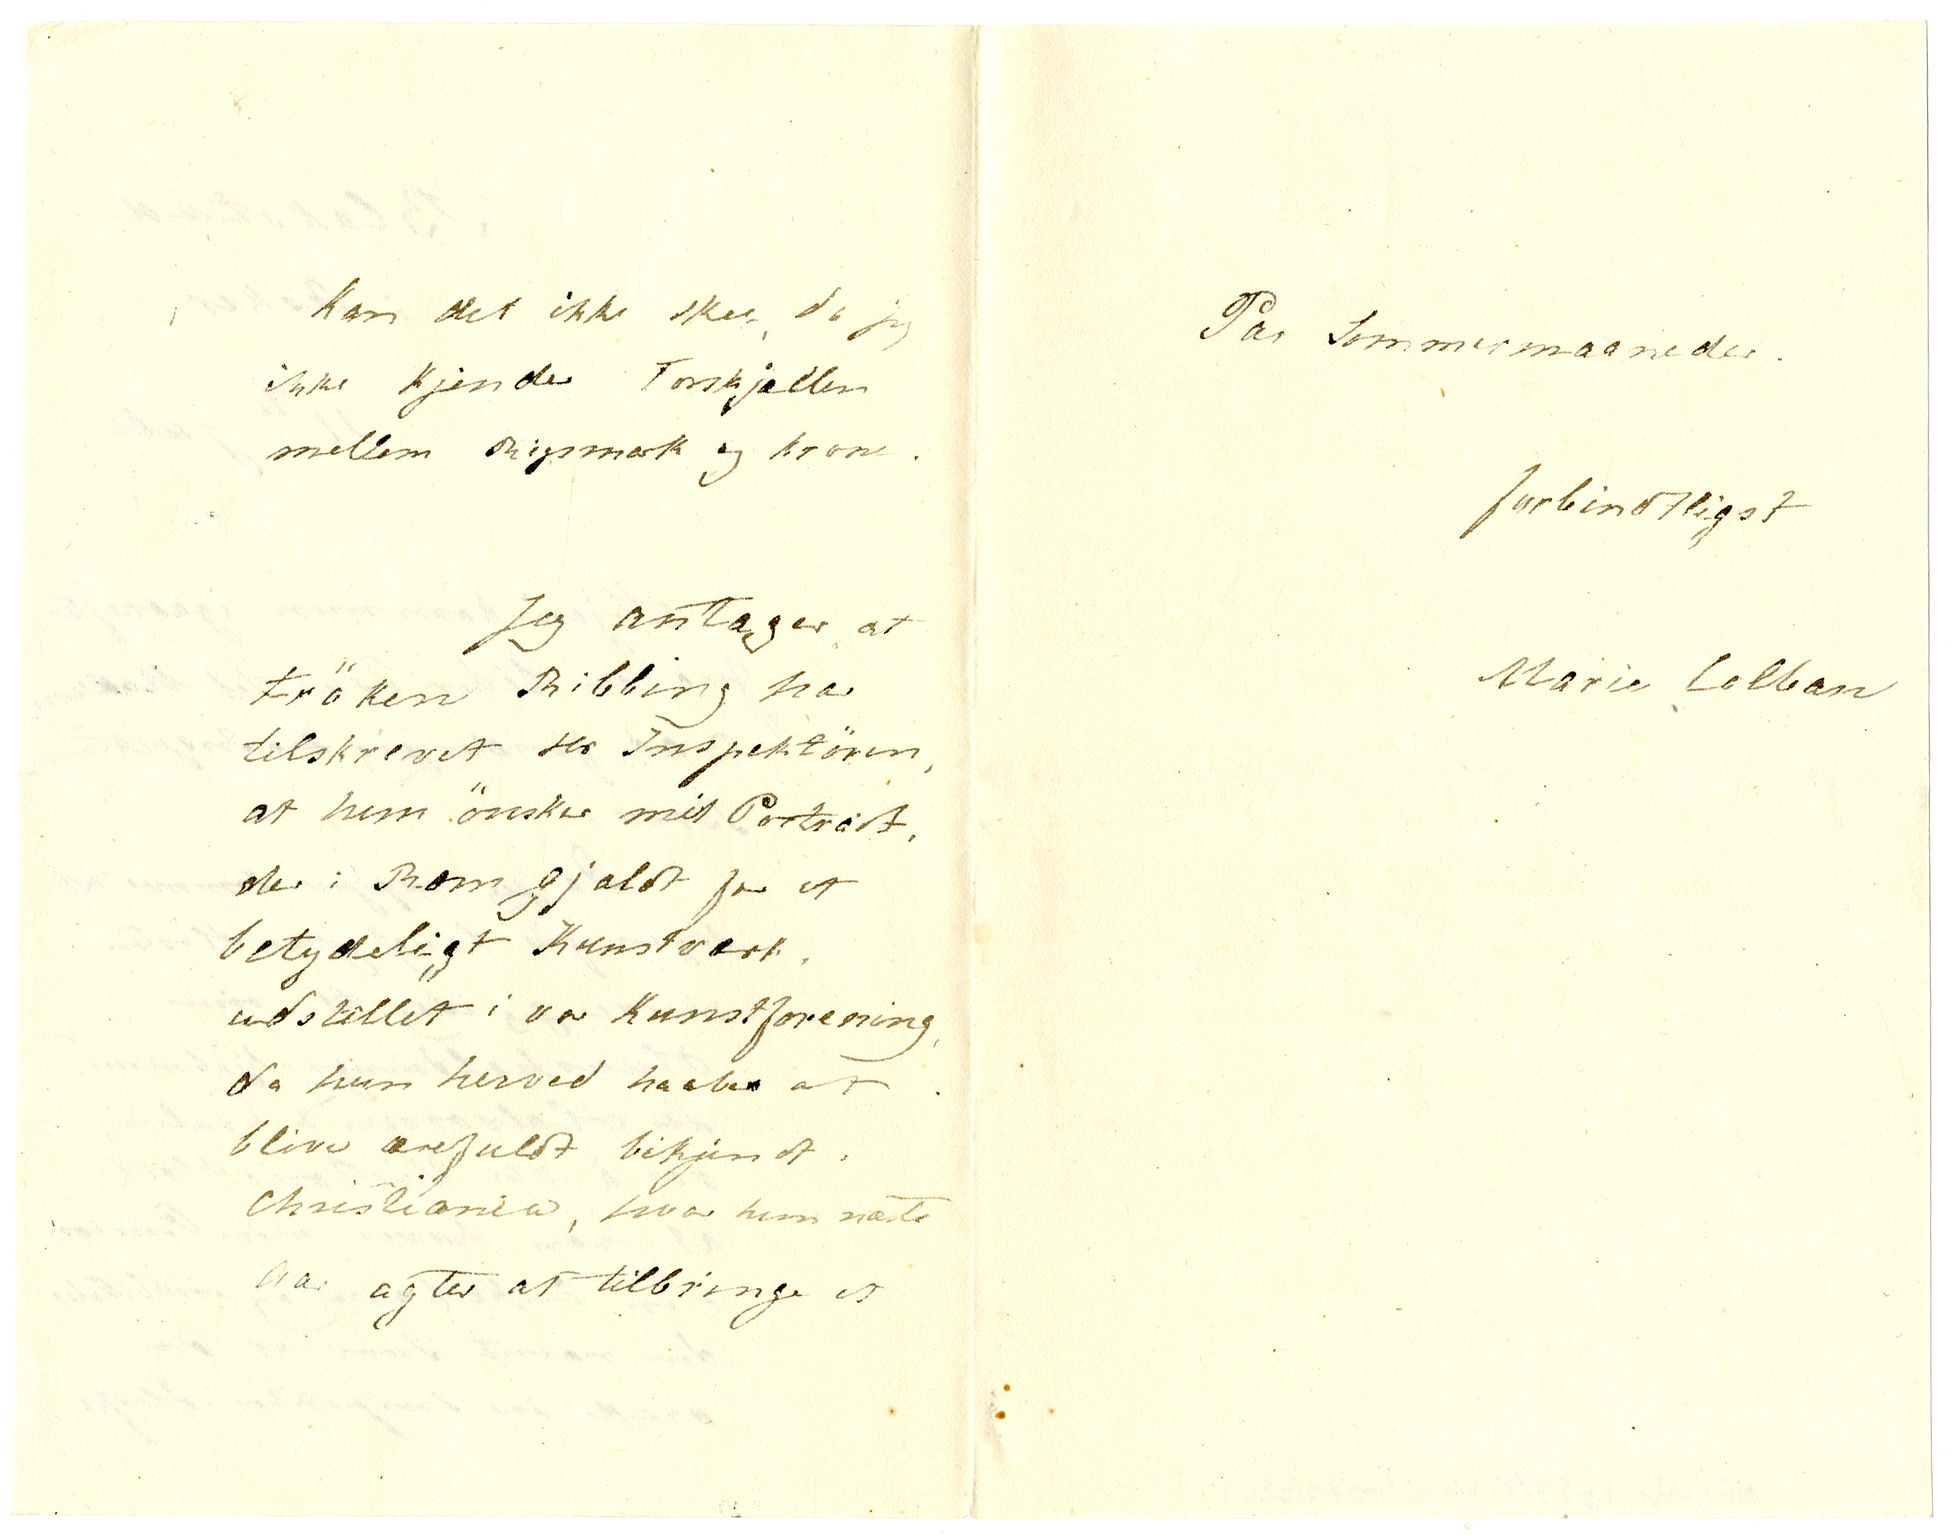 Kan det ikke skee, da jeg
ikke kjender Forskjellen
mellem Rigsmark og krone.
Jeg antager at
Fröken Ribbing har
tilskrevet Hr Inspektören,
at hun önsker mit Porträt,
der i Rom gjaldt for et
betydeligt Kunstværk,
udstillet i vor Kunstforening,
da hun herved haaber at
blive ærefuldt bekjendt i
Christiania, hvor hun næste
Aar agter at tilbringe et
Par Sommermaaneder.
forbindtligst
Marie Colban